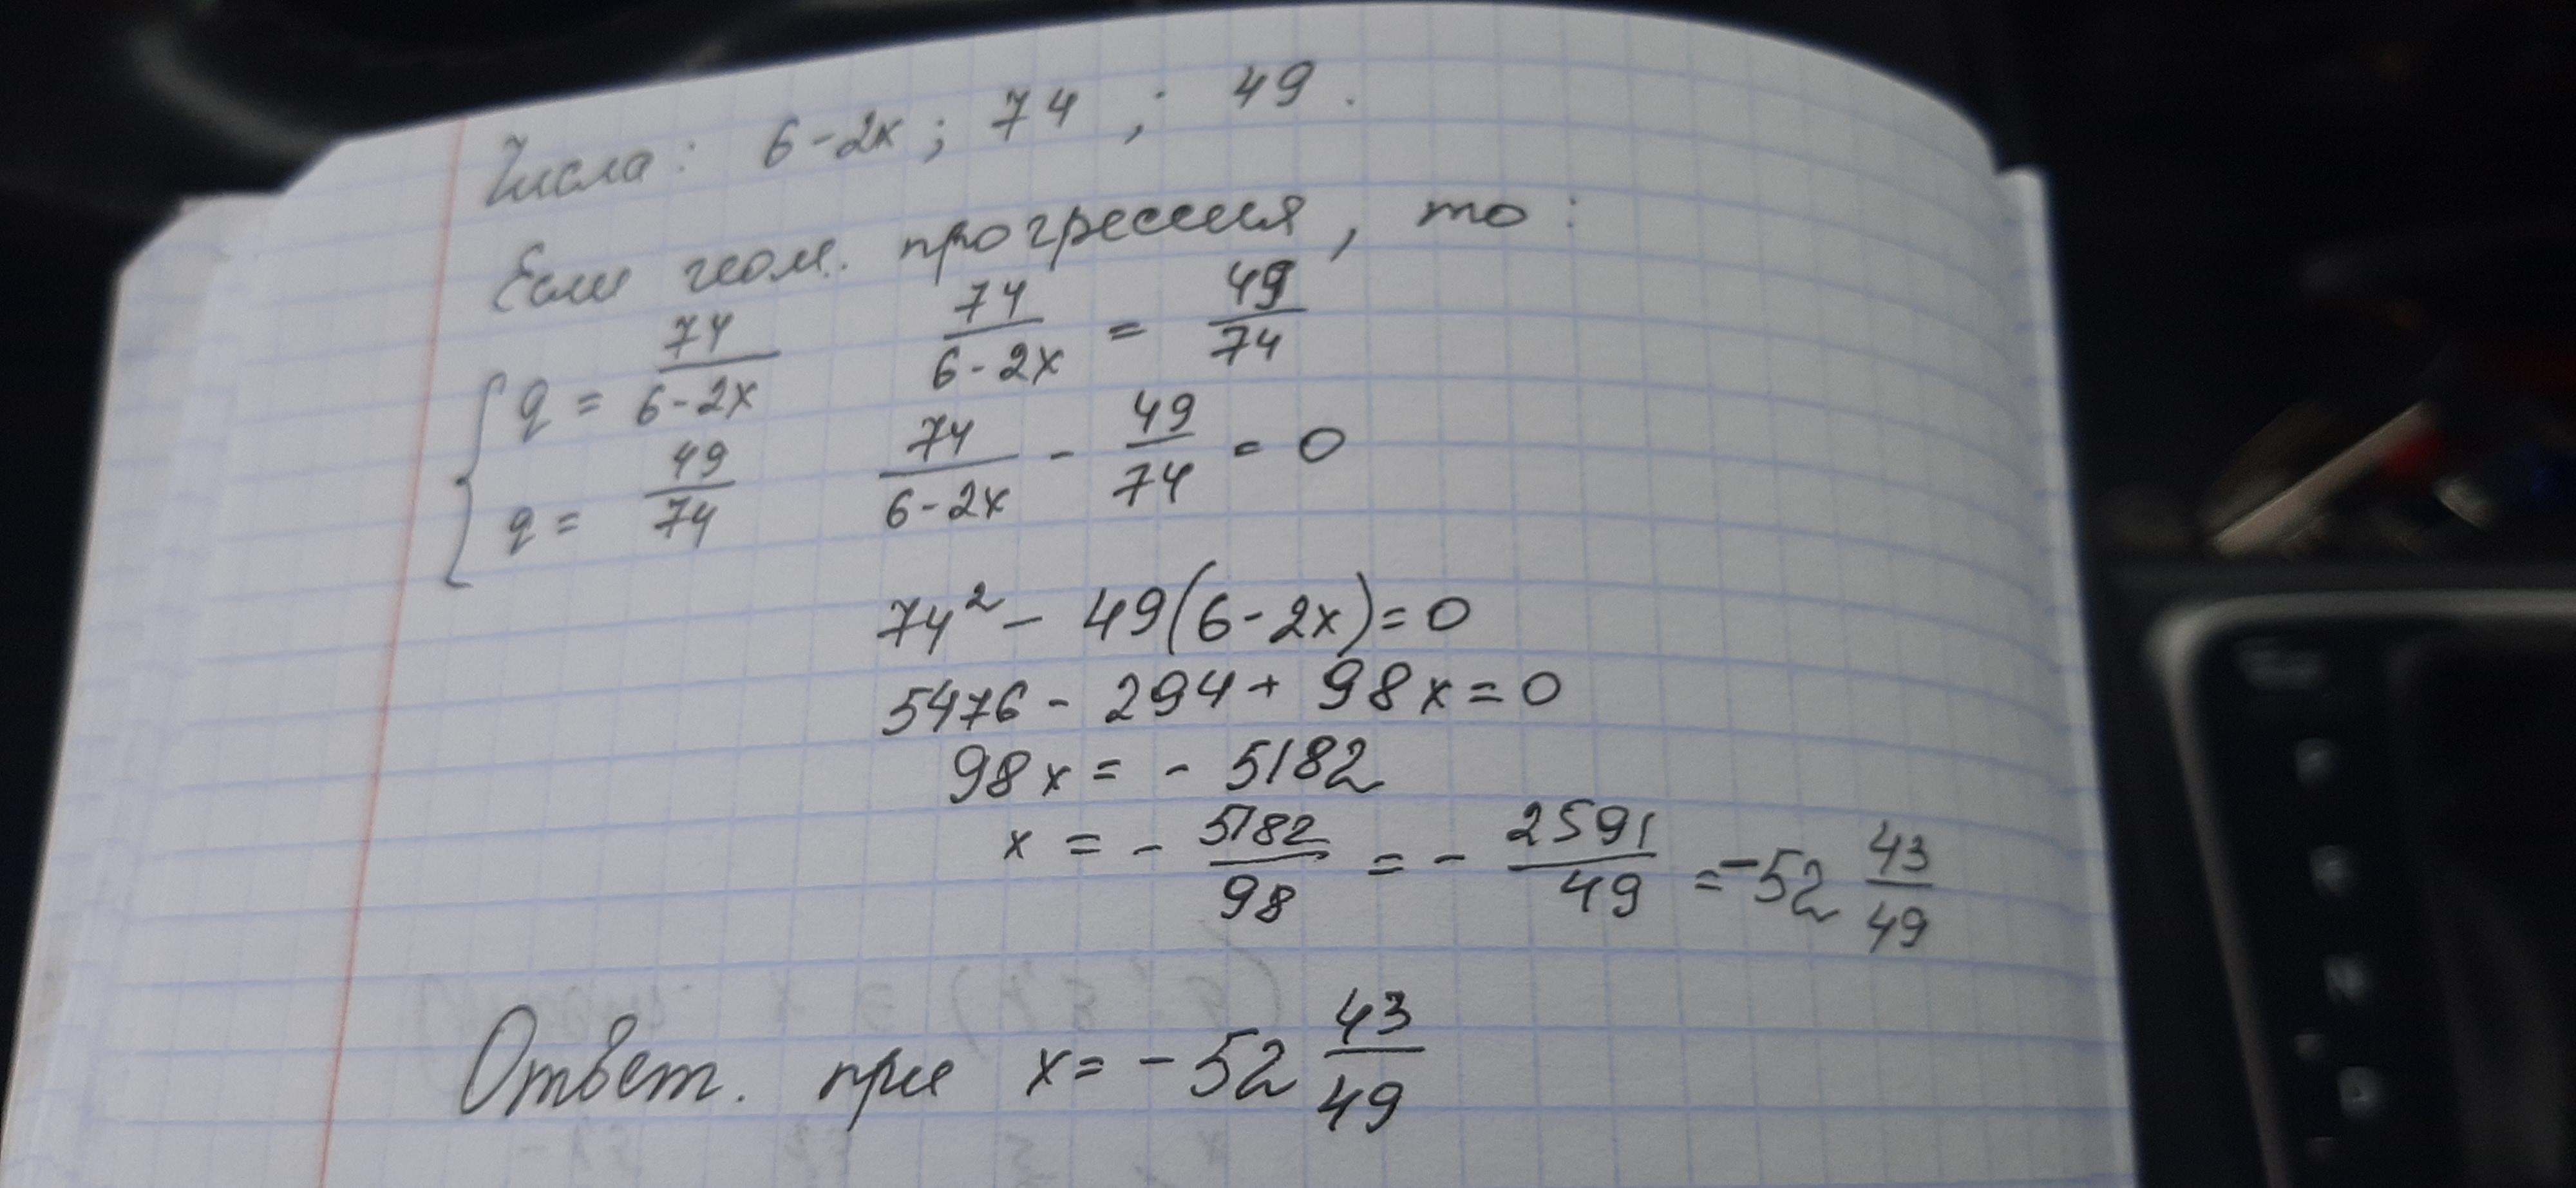 Числа: 6-2x; 74 ; 49.
Если геом. прогрессия, то:
{ q = 74/(6-2x)   74/(6-2x) = 49/74
q = 49/74   74/(6-2x) - 49/74 = 0
74² - 49(6-2x)=0
5476 - 294 + 98x = 0
98x = - 5182
x = - 5182/98 = - 2591/49 = -52 43/49
Ответ. при x = -52 43/49